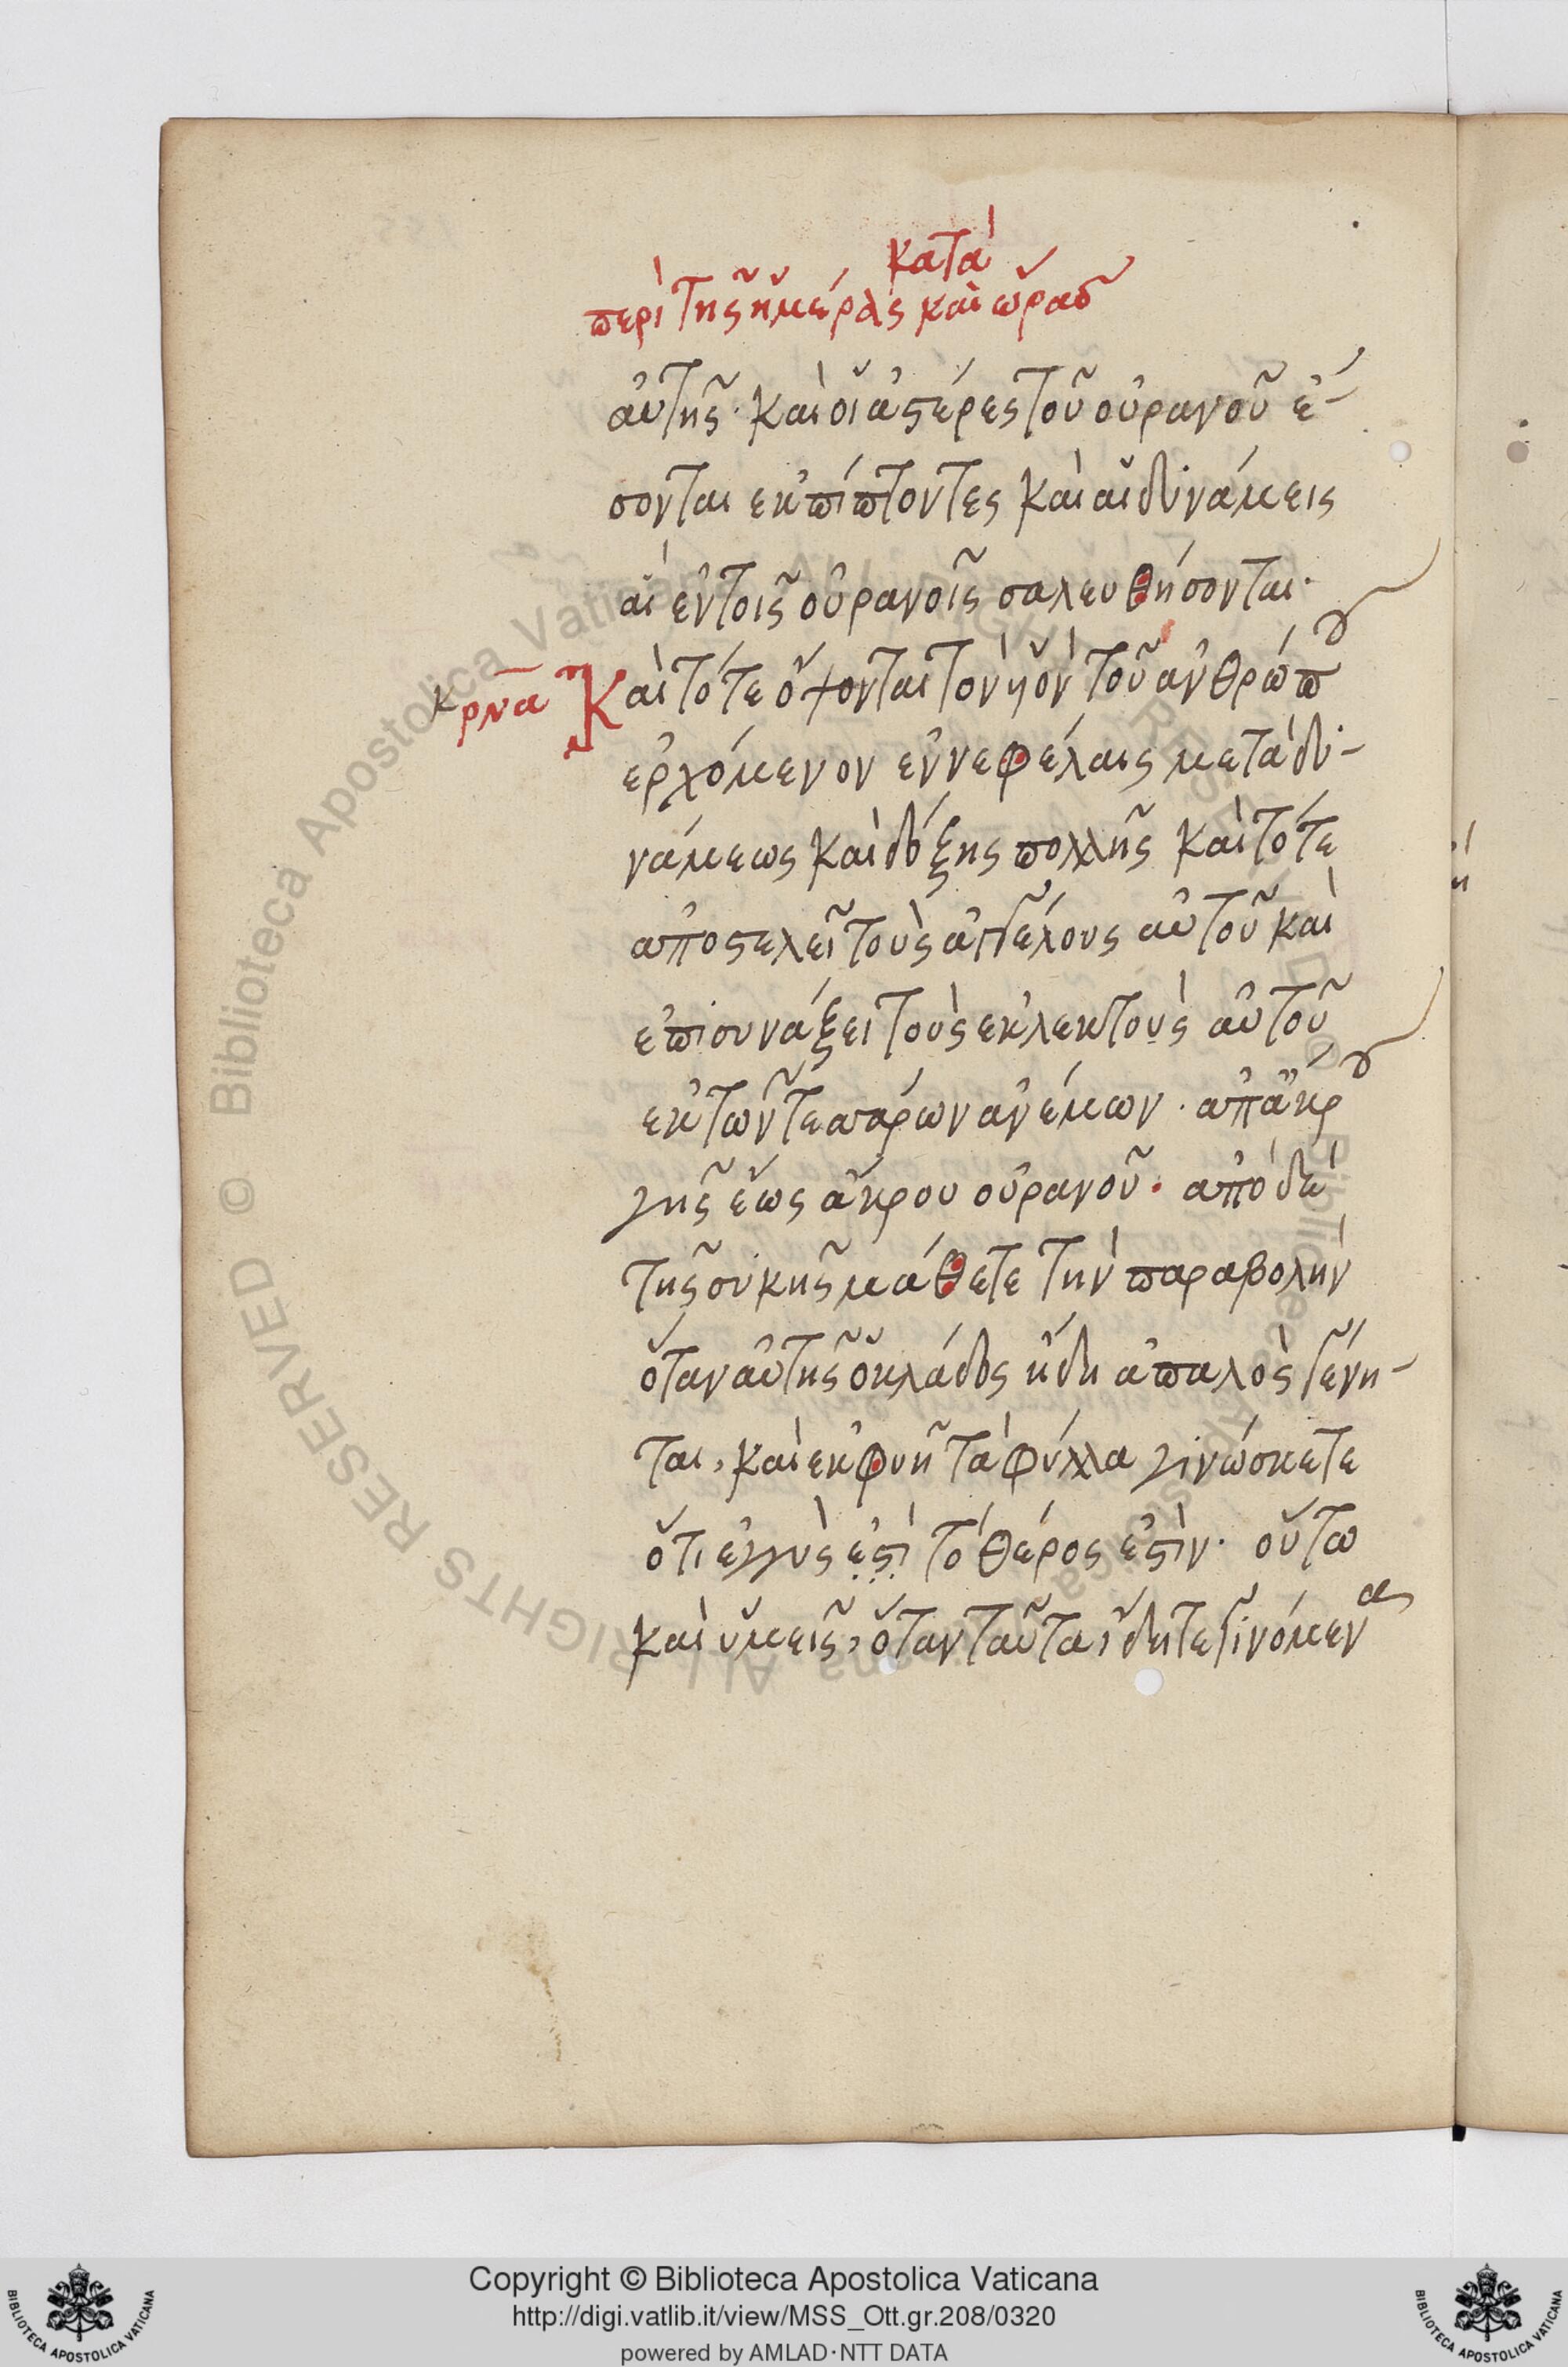 κατὰ
περὶ τῆς ἡμέρας καὶ ὥρας
αὐτῆς· καὶ οἱ ἀστέρες τοῦ οὐρανοῦ ἔ-
σονται ἐκπίπτοντες καὶ αἱ δυνάμεις
αἱ ἐν τοῖς οὐρανοῖς σαλευθήσονται·
κ ρνα Καὶ τότε ὄψονται τὸν ὑὸν τοῦ ἀνθρώπου
ἐρχόμενον ἐν νεφέλαις μετὰ δυ-
νάμεως καὶ δόξης πολλῆς καὶ τότε
ἀποστελεῖ τοὺς ἀγγέλους αὐτοῦ καὶ
ἐπισυνάξει τοὺς ἐκλεκτοὺς αὐτοῦ
ἐκ τῶν τεσσάρων ἀνέμων· ἀπ ἄκρου
γῆς ἕως ἄκρου οὐρανοῦ· ἀπὸ δὲ
τῆς συκῆς μάθετε τὴν παραβολὴν
ὅταν αὐτῆς ὁ κλάδος ἤδη ἁπαλὸς γένη-
ται, καὶ ἐκφυῆ τὰ φύλλα γινώσκετε
ὅτι ἐγγὺς ἐστὶ τὸ θέρος ἐστὶν· οὕτω
καὶ ὑμεῖς, ὅταν ταῦτα ἴδητε γινόμενα
Copyright © Biblioteca Apostolica Vaticana
http://digi.vatlib.it/view/MSS_Ott.gr.208/0320
powered by AMLAD·NTT DATA
BIBLIOTECA APOSTOLICA VATICANA
BIBLIOTECA APOSTOLICA VATICANA